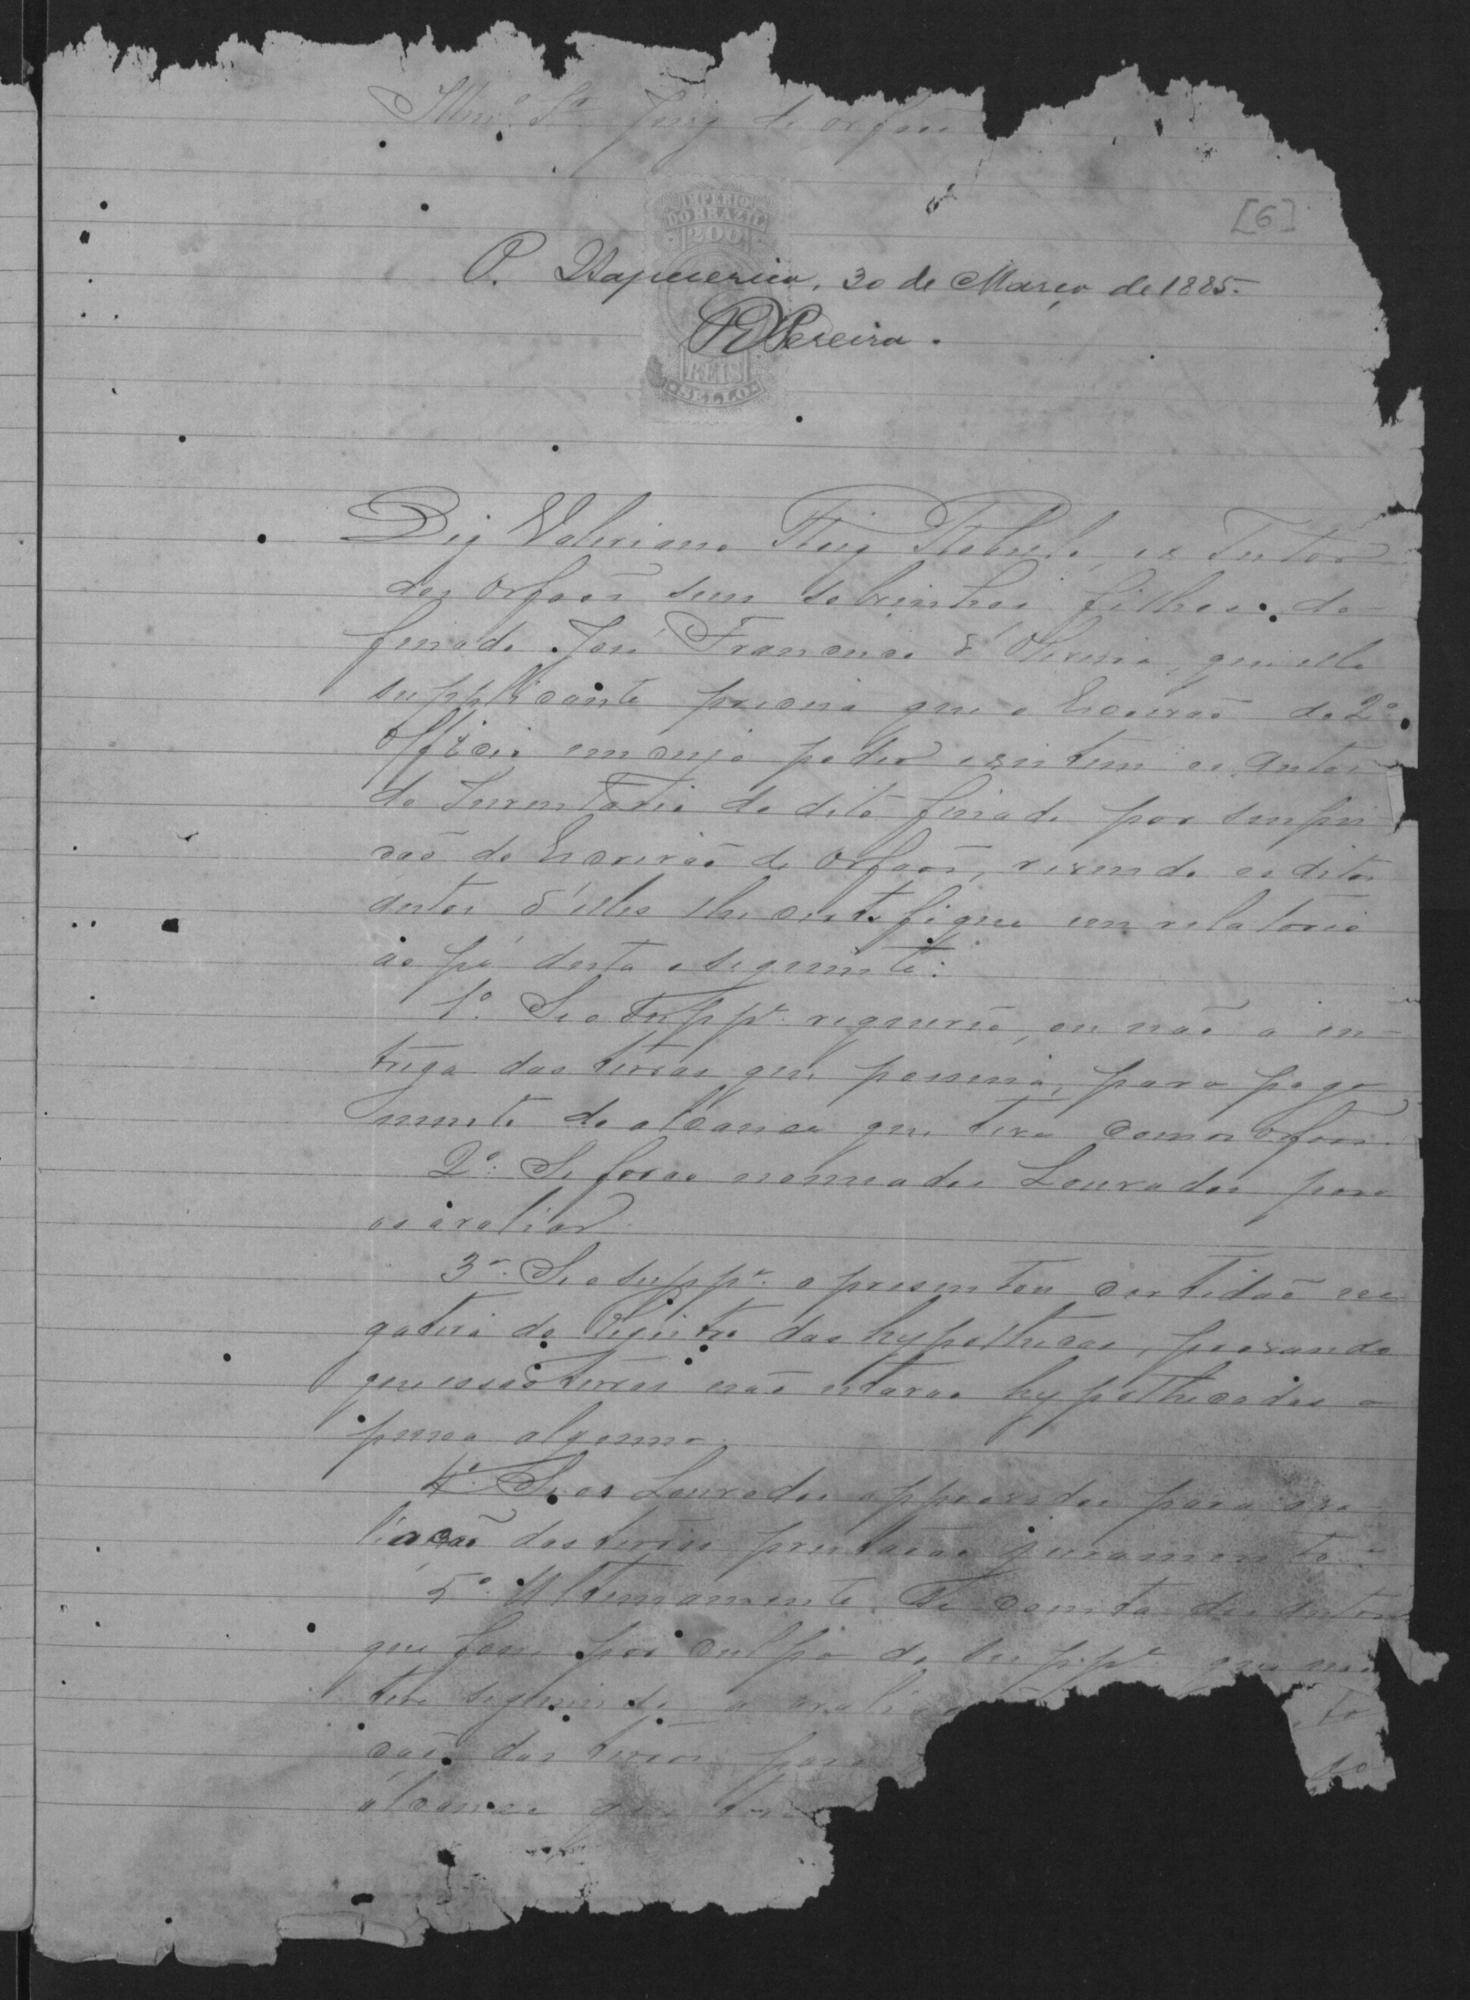 Illmo. Sr. Juiz de orfãos
[6]
IMPERIO
DO BRAZIL
200
P. Itapecerica, 30 de Março de 1885.
Pereira.
REIS
SELLO
Diz Valeriano Rebello, ex Tutor
dos Orfaõs seus sobrinhos filhos do
finado José Francisco d'Oliveira, que elle
supplicante precisa que o Escrivaõ do 2º
Officio em cujo poder existem os autos
do Inventario do dito finado por suspei
çaõ do Escrivaõ de Orfaõs, revendo os ditos
autos d'elles lhe certifique em relatorio
ao pé desta o seguinte:
1º. Se o Suppe. requereo, ou naõ a en-
trega das terras que possuia, para paga
mento do alcance que teve com os Orfaõs.
2º. Se foraõ nomeados Louvados para
as avaliar.
3º. Se o suppe. apresentou certidaõ ne
gativa do Registro das hypothecas, provando
que essas terras naõ estavaõ hypothecadas a
pessoa alguma.
4º. Se os Louvados approvados para ava
liaçaõ das terras prestaraõ juramento.
5º. Ultimamente, Se consta dos autos
que fosse por culpa do Suppe. que naõ
teve seguimento a avalia
çaõ das terras para
alcance que teve